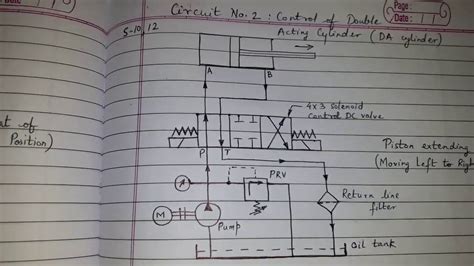 Page:
Date:
Circuit No. 2 : Control of Double
Acting Cylinder (DA cylinder)
5-10, 12
A
B
4x3 solenoid
control DC valve
at of
Position)
P
T
Piston extending
(Moving Left to Right
PRV
Return line
filter
M
Pump
Oil tank